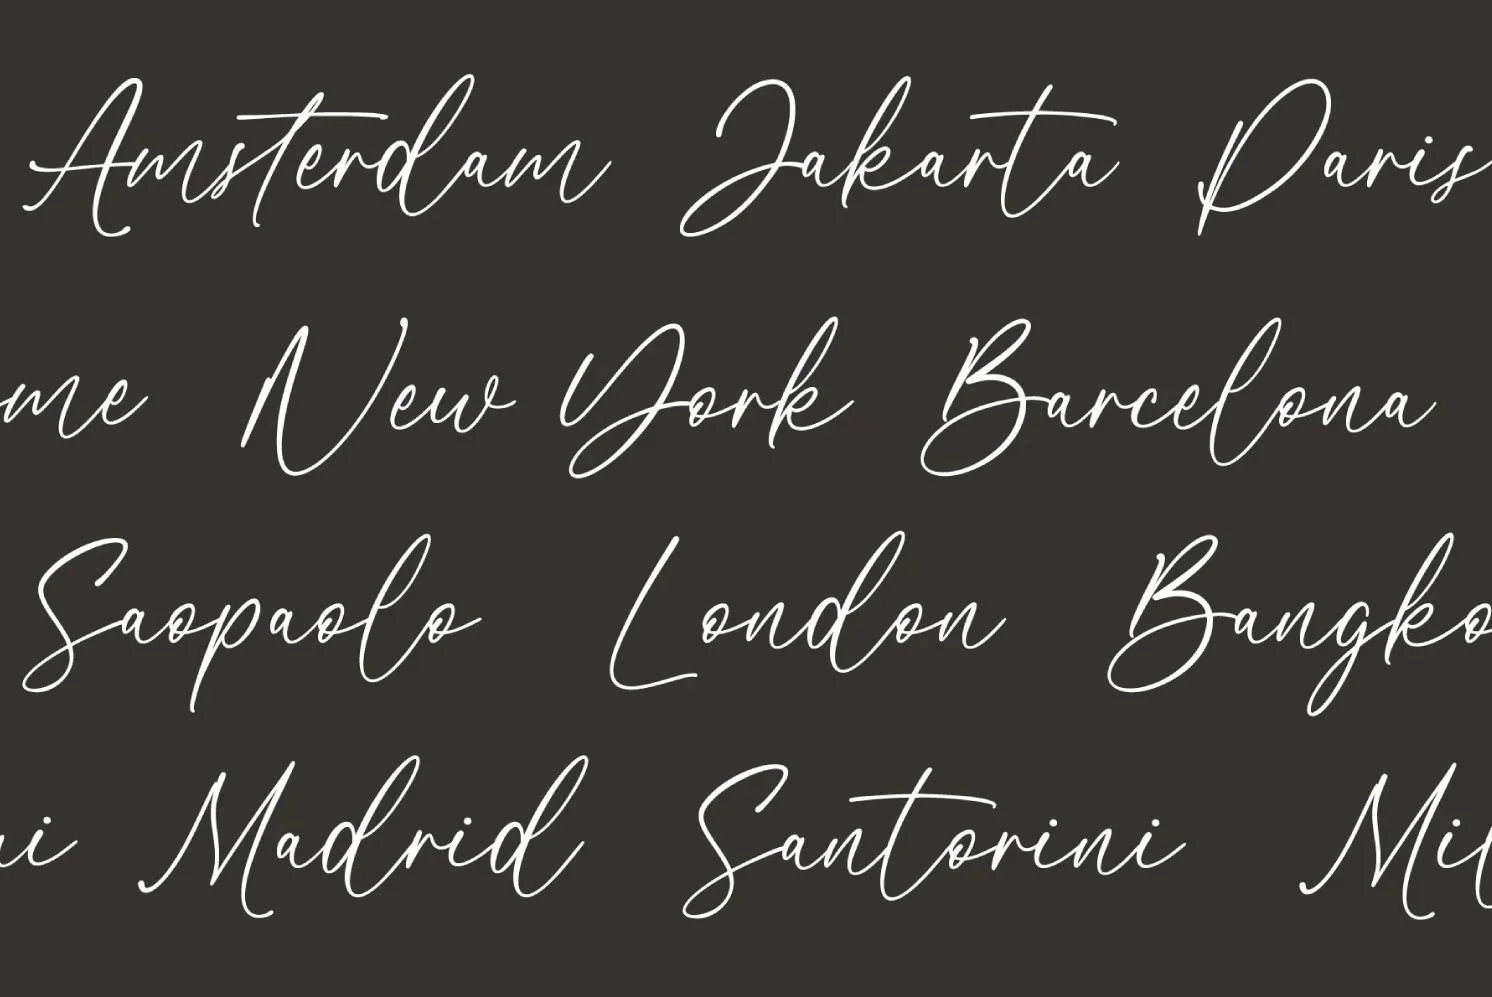 Amsterdam Jakarta Paris
me New York Barcelona
Saopaolo London Bangko
i Madrid Santorini Mil